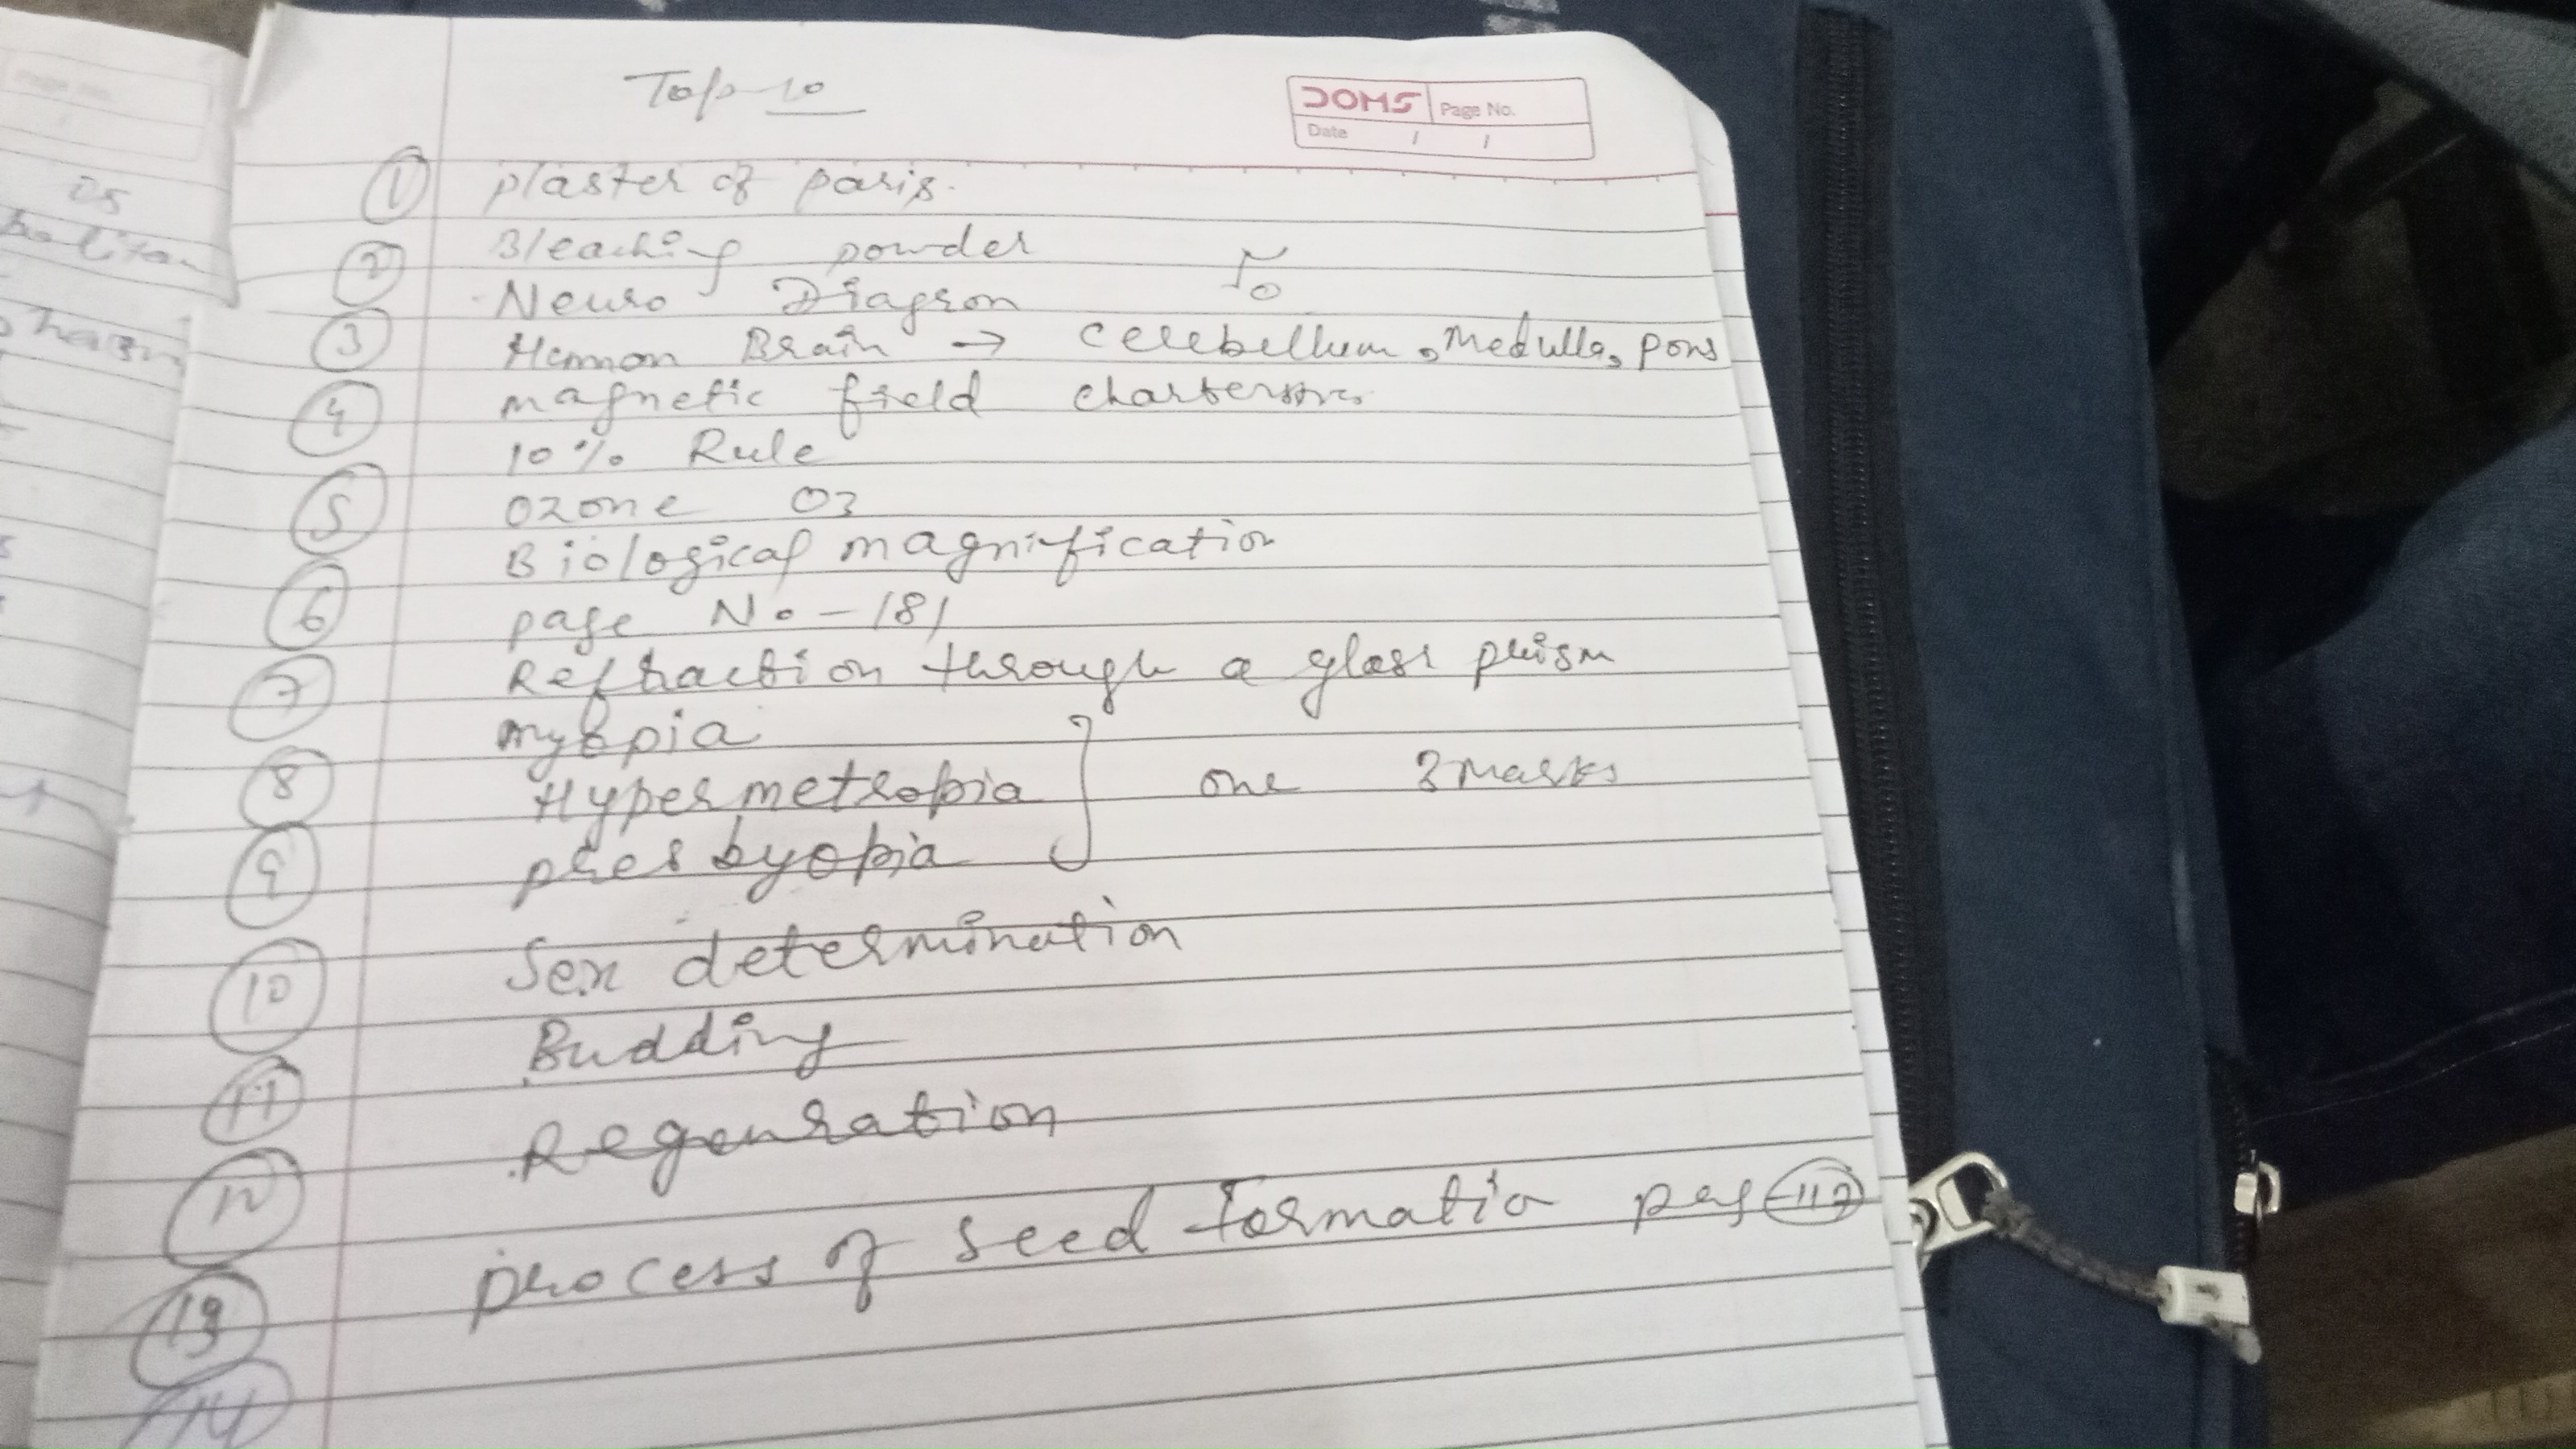 Top 10
DOMS Page No.
Date / /
① plaster of paris.
② Bleaching powder
Neuro Diagron
③ Hemmon Brain → cerebellum, Medulla, pons
④ magnetic field
10% Rule
⑤ ozone O3
Biological magnification
⑥ page No - 181
⑦ Refraction through a glass prism
myopia
⑧ Hypermetropia one 3 marks
⑨ presbyopia
⑩ Sex determination
⑪ Budding
⑫ Regenration
⑬ process of seed formatio
⑭
Page No.
is